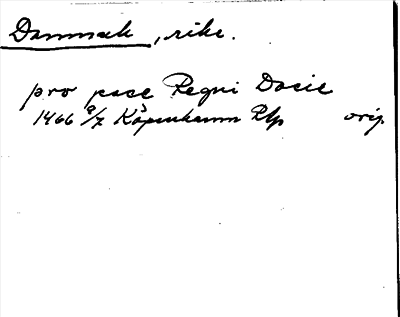 Danmark, rike.
pro pace Regni Dacie
1466 9/7 Köpenhamn Rlp orig.